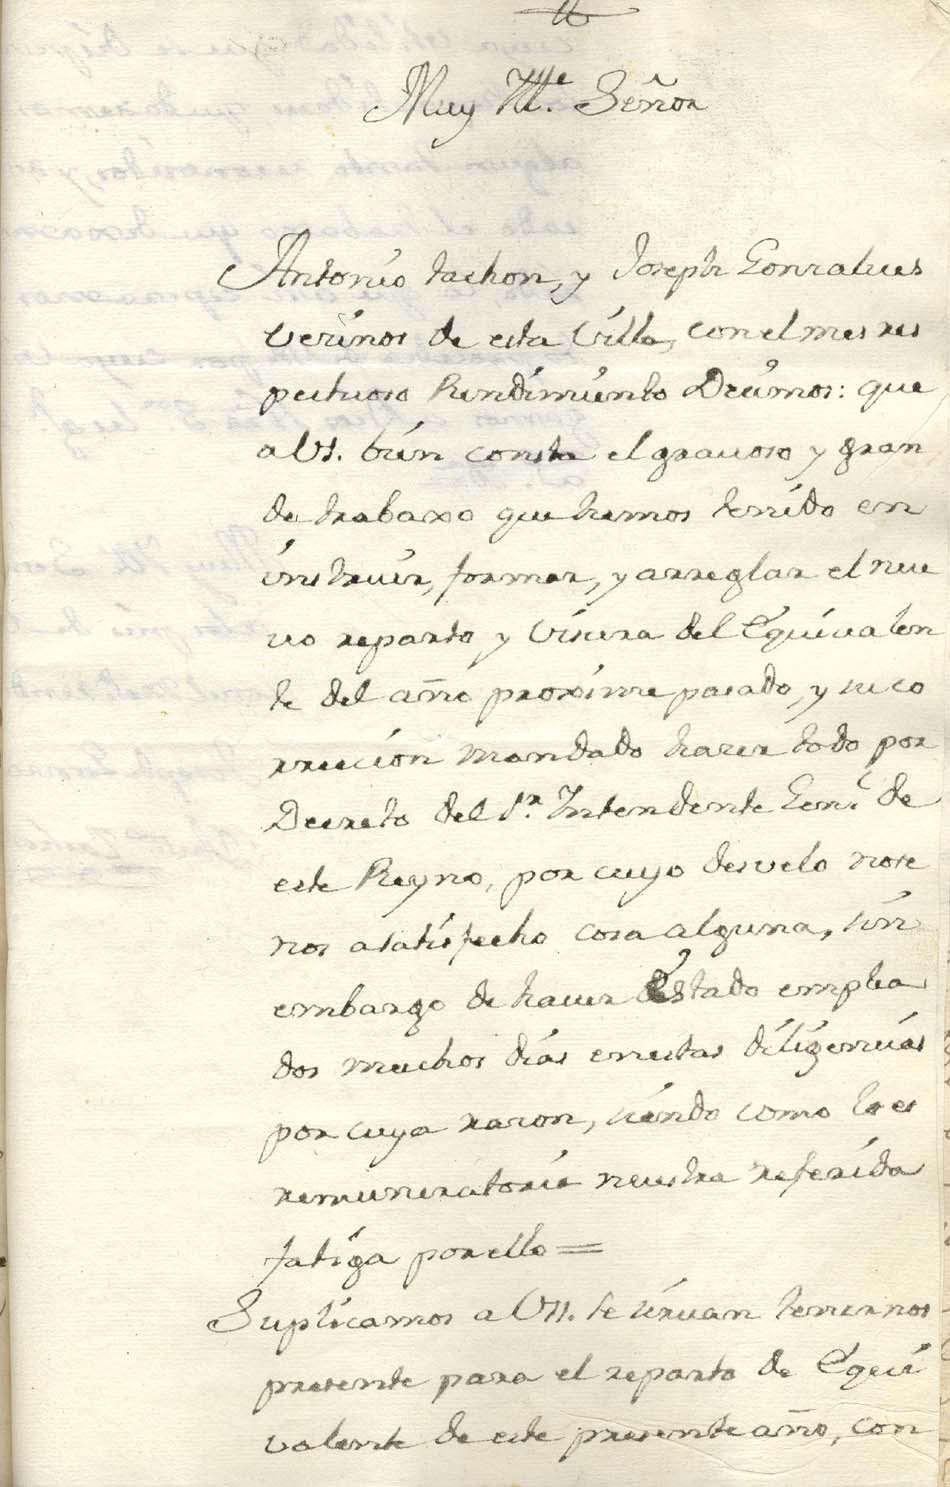 Muy Ille. Señor
Antonio tachon, y Joseph Gonzalues
vezinos de esta Villa, con el mes res
pectuoso Rendimiento Dezimos: que
a VS. bien consta el grauoso y gran
de trabaxo que hemos tenido en
instruir, formar, y arreglar el nue
uo reparto y Visura del Equiualen
te del año proxime pasado, y su co
rreccion mandado hazer todo por
Decreto del Sr. Intendente Genl de
este Reyno, por cuyo desvelo nose
nos a satisfecho cosa alguna, sin
embargo de hauer Estado emplea
dos muchos dias en estas diligencias
por cuya razon, siendo como lo es
remuneratoria nuestra referida
fatiga por ello =
Suplicamos a VSS. se siruan tenernos
presente para el reparto de Equi
valente de este presente año, con